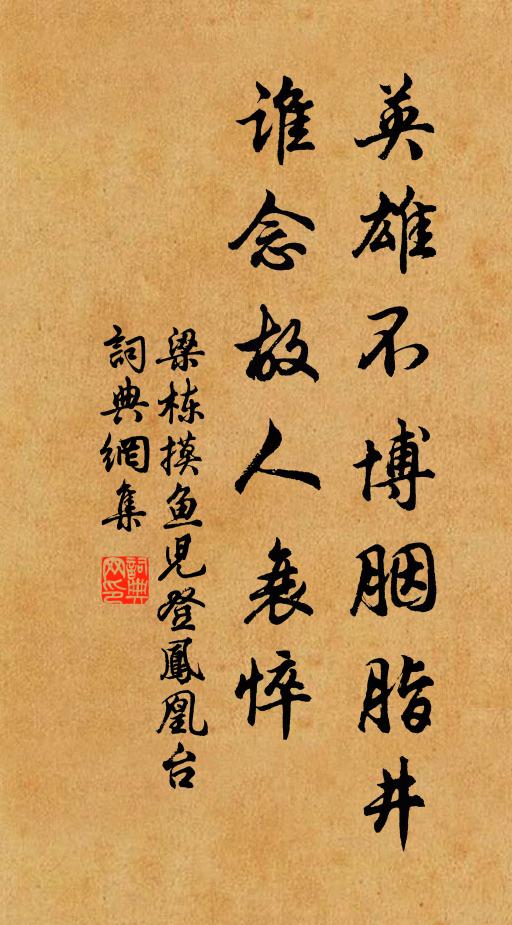 英雄不博胭脂井
谁念故人衰悴
梁栋摸鱼児登鳳凰台
詞典網集
詞典网印